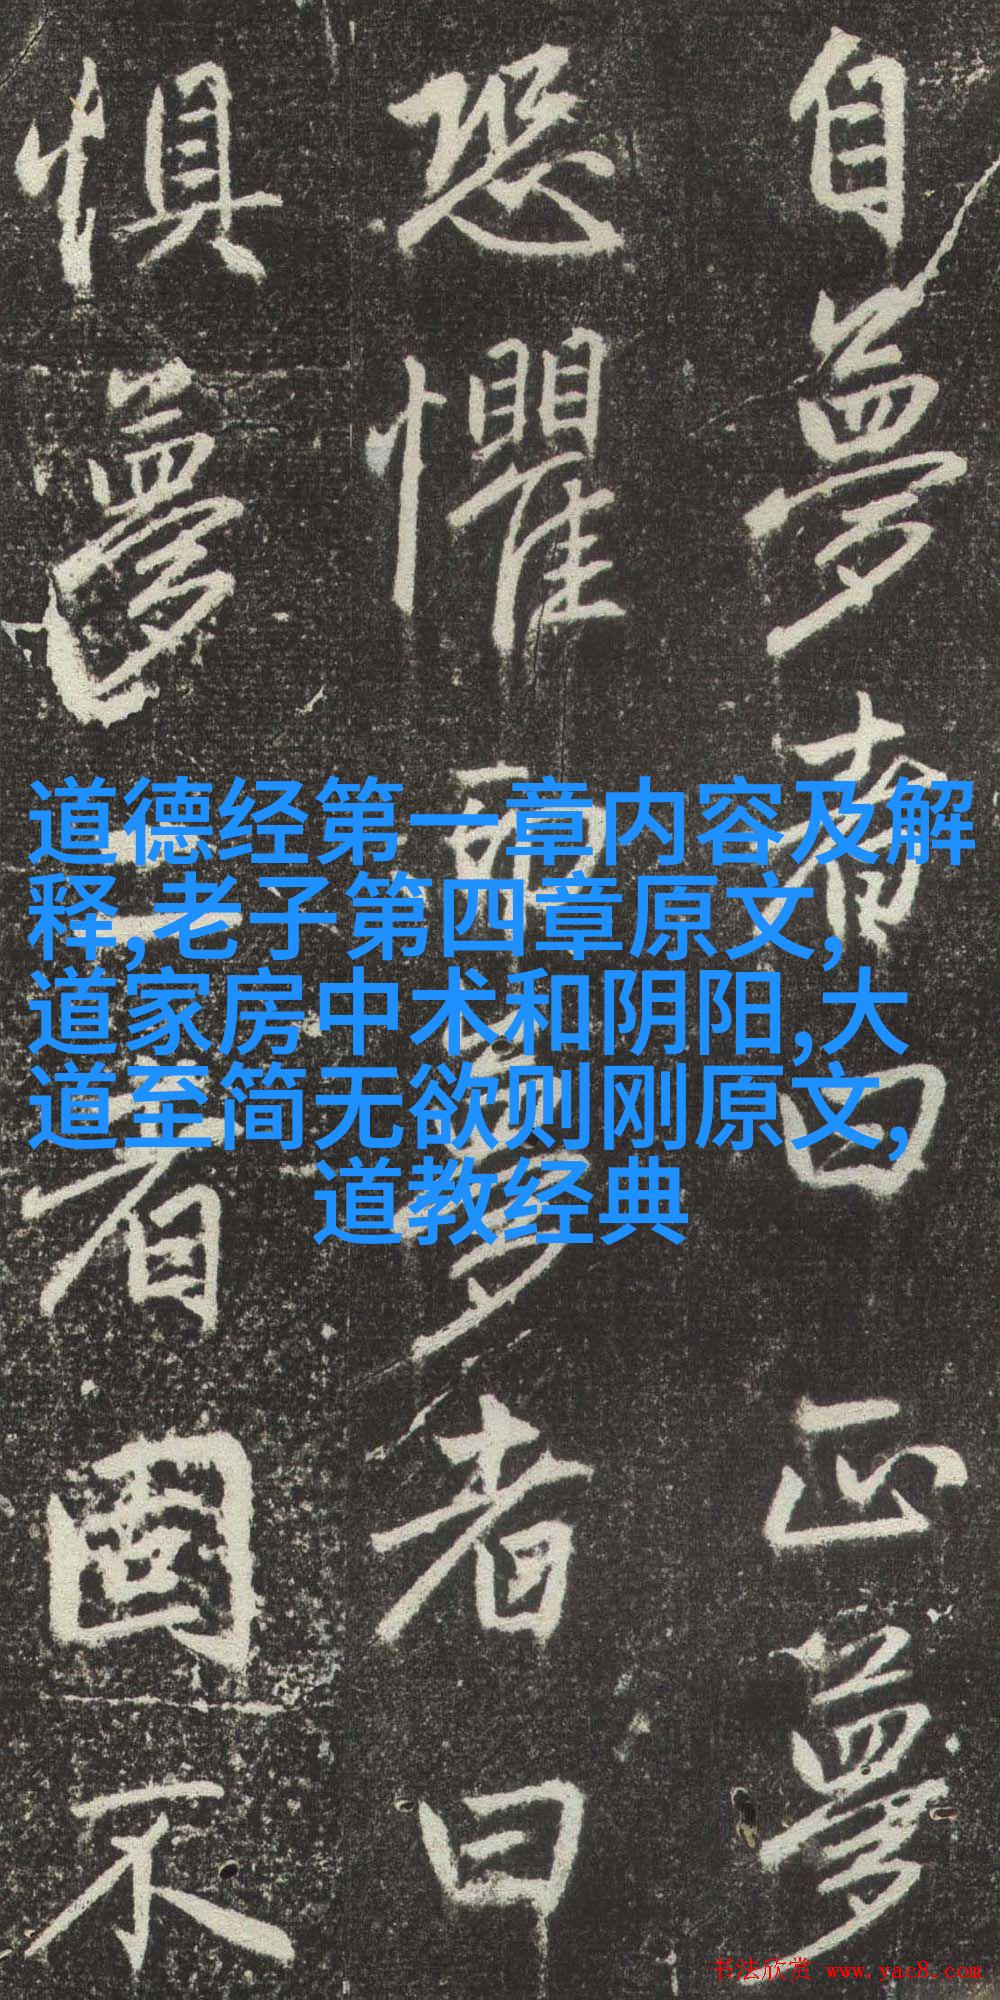 自夢者曰正夢
恐懼而夢者曰
惧夢二者固不
道德经第一章内容及解
释,老子第四章原文,
道家房中术和阴阳,大
道至简无欲则刚原文,
道教经典
书法欣赏 www.yac8.com